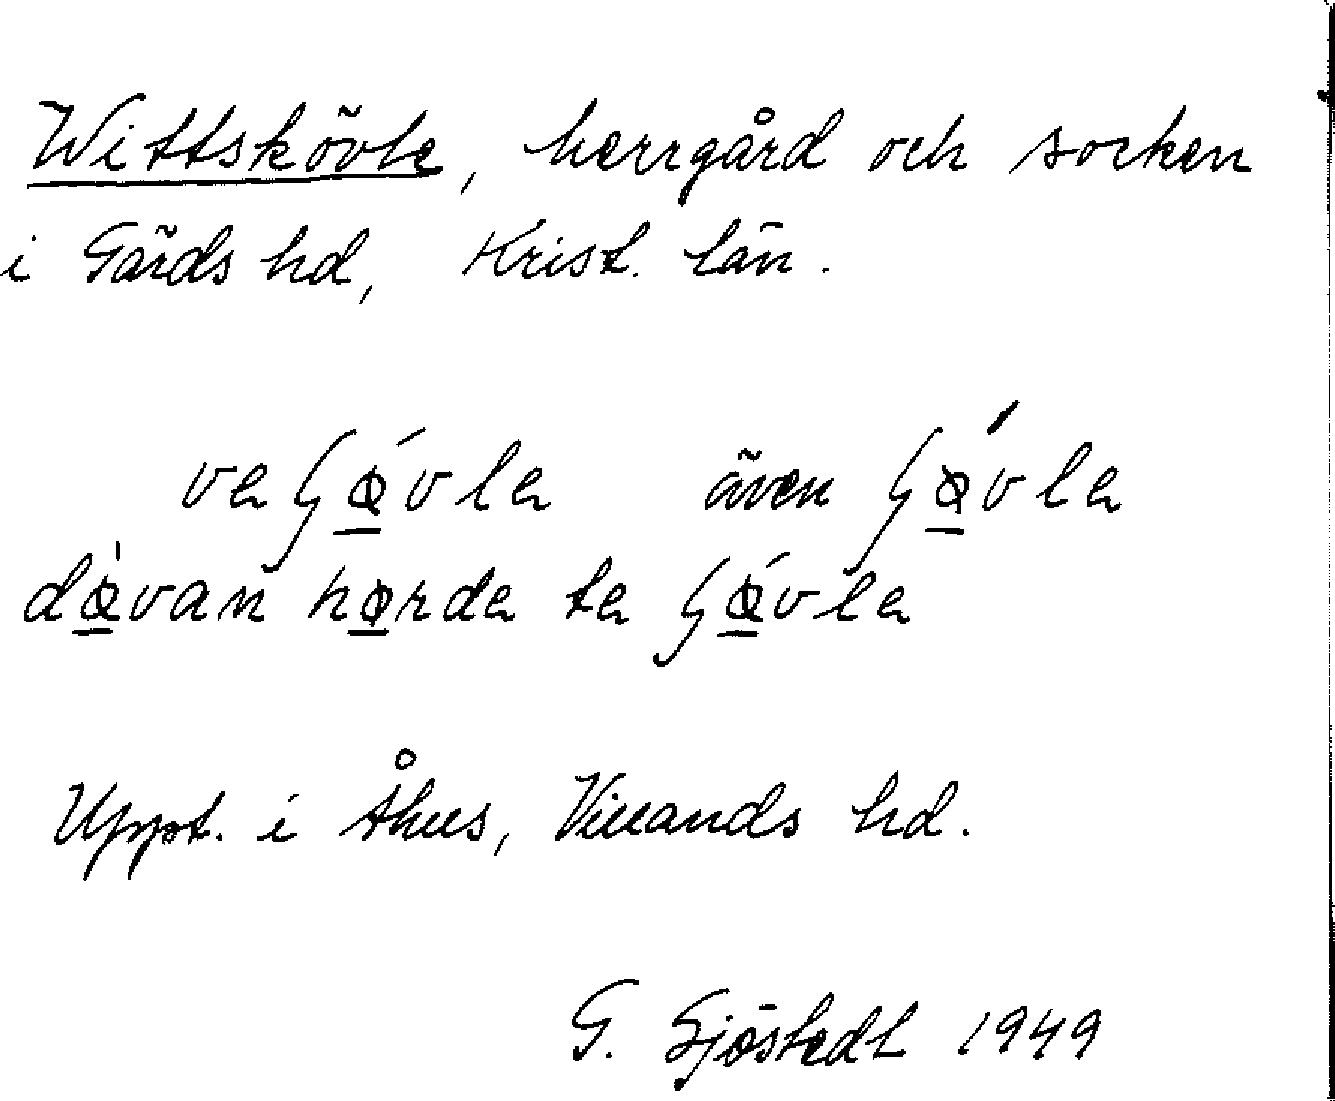 Wittskövle, herrgård och socken
i Gärds hd, Krist. län.
vaʃǿ̱vla även ʃǿ̱vla
dø̱̀van hø̱rda ta ʃǿ̱vla
Uppt. i Åhus, Villands hd.
G. Sjöstedt 1949